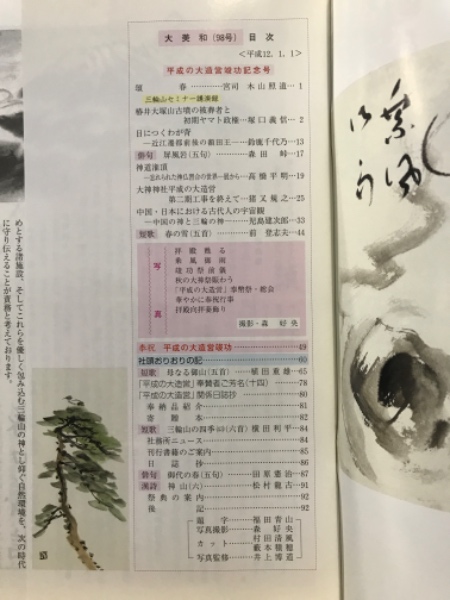 大美和(98号) 目次
<平成12.1.1>
平成の大造営竣功記念号
頌 春…………宮司 木山照道…1
三輪山セミナー講演録
椿井大塚山古墳の被葬者と
初期ヤマト政権…塚口義信…2
目につくわが背
―近江遷都前後の額田王―…鈴鹿千代乃…13
俳句 屏風岩(五句)…………森田 峠…17
神道灌頂
―忘れられた神仏習合の世界一面から―…高橋平明…19
大神神社平成の大造営
第二期工事を終えて…猪又規之…25
中国・日本における古代人の宇宙観
―中国の神と三輪の神―…児島建次郎…33
短歌 春の宵(五首)…………前 登志夫…44
写真
拝殿甦る
竣功祭後儀
秋の大神祭賑わう
「平成の大造営」奉幣祭・総会
華やかに奉祝行事
拝殿向拝妻飾り
撮影・森 好央
奉祝 平成の大造営竣功……………49
社頭おりおりの記……………60
短歌 母なる御山(五首)…植田重雄…65
「平成の大造営」奉賛者ご芳名(十四)……78
「平成の大造営」関係日誌抄……………80
奉納品紹介……………81
寄贈本……………82
短歌 三輪山の四季㈣(六首)富田利平…84
社務所ニュース……………84
刊行書籍のご案内……………85
日誌抄……………86
俳句 御代の春(五句)……田原憲治…87
漢詩 神山(六)……………松村龍古…91
祭典の案内……………92
後記……………92
題字……福田青山
写真撮影……森 好央
カット……村田清風
藪本積穂
写真監修……井上博道
めとする諸施設、そしてこれらを優しく包み込む三輪山の神とし仰ぐ自然環境を、次の時代
に守り伝えることが責務と考えております。